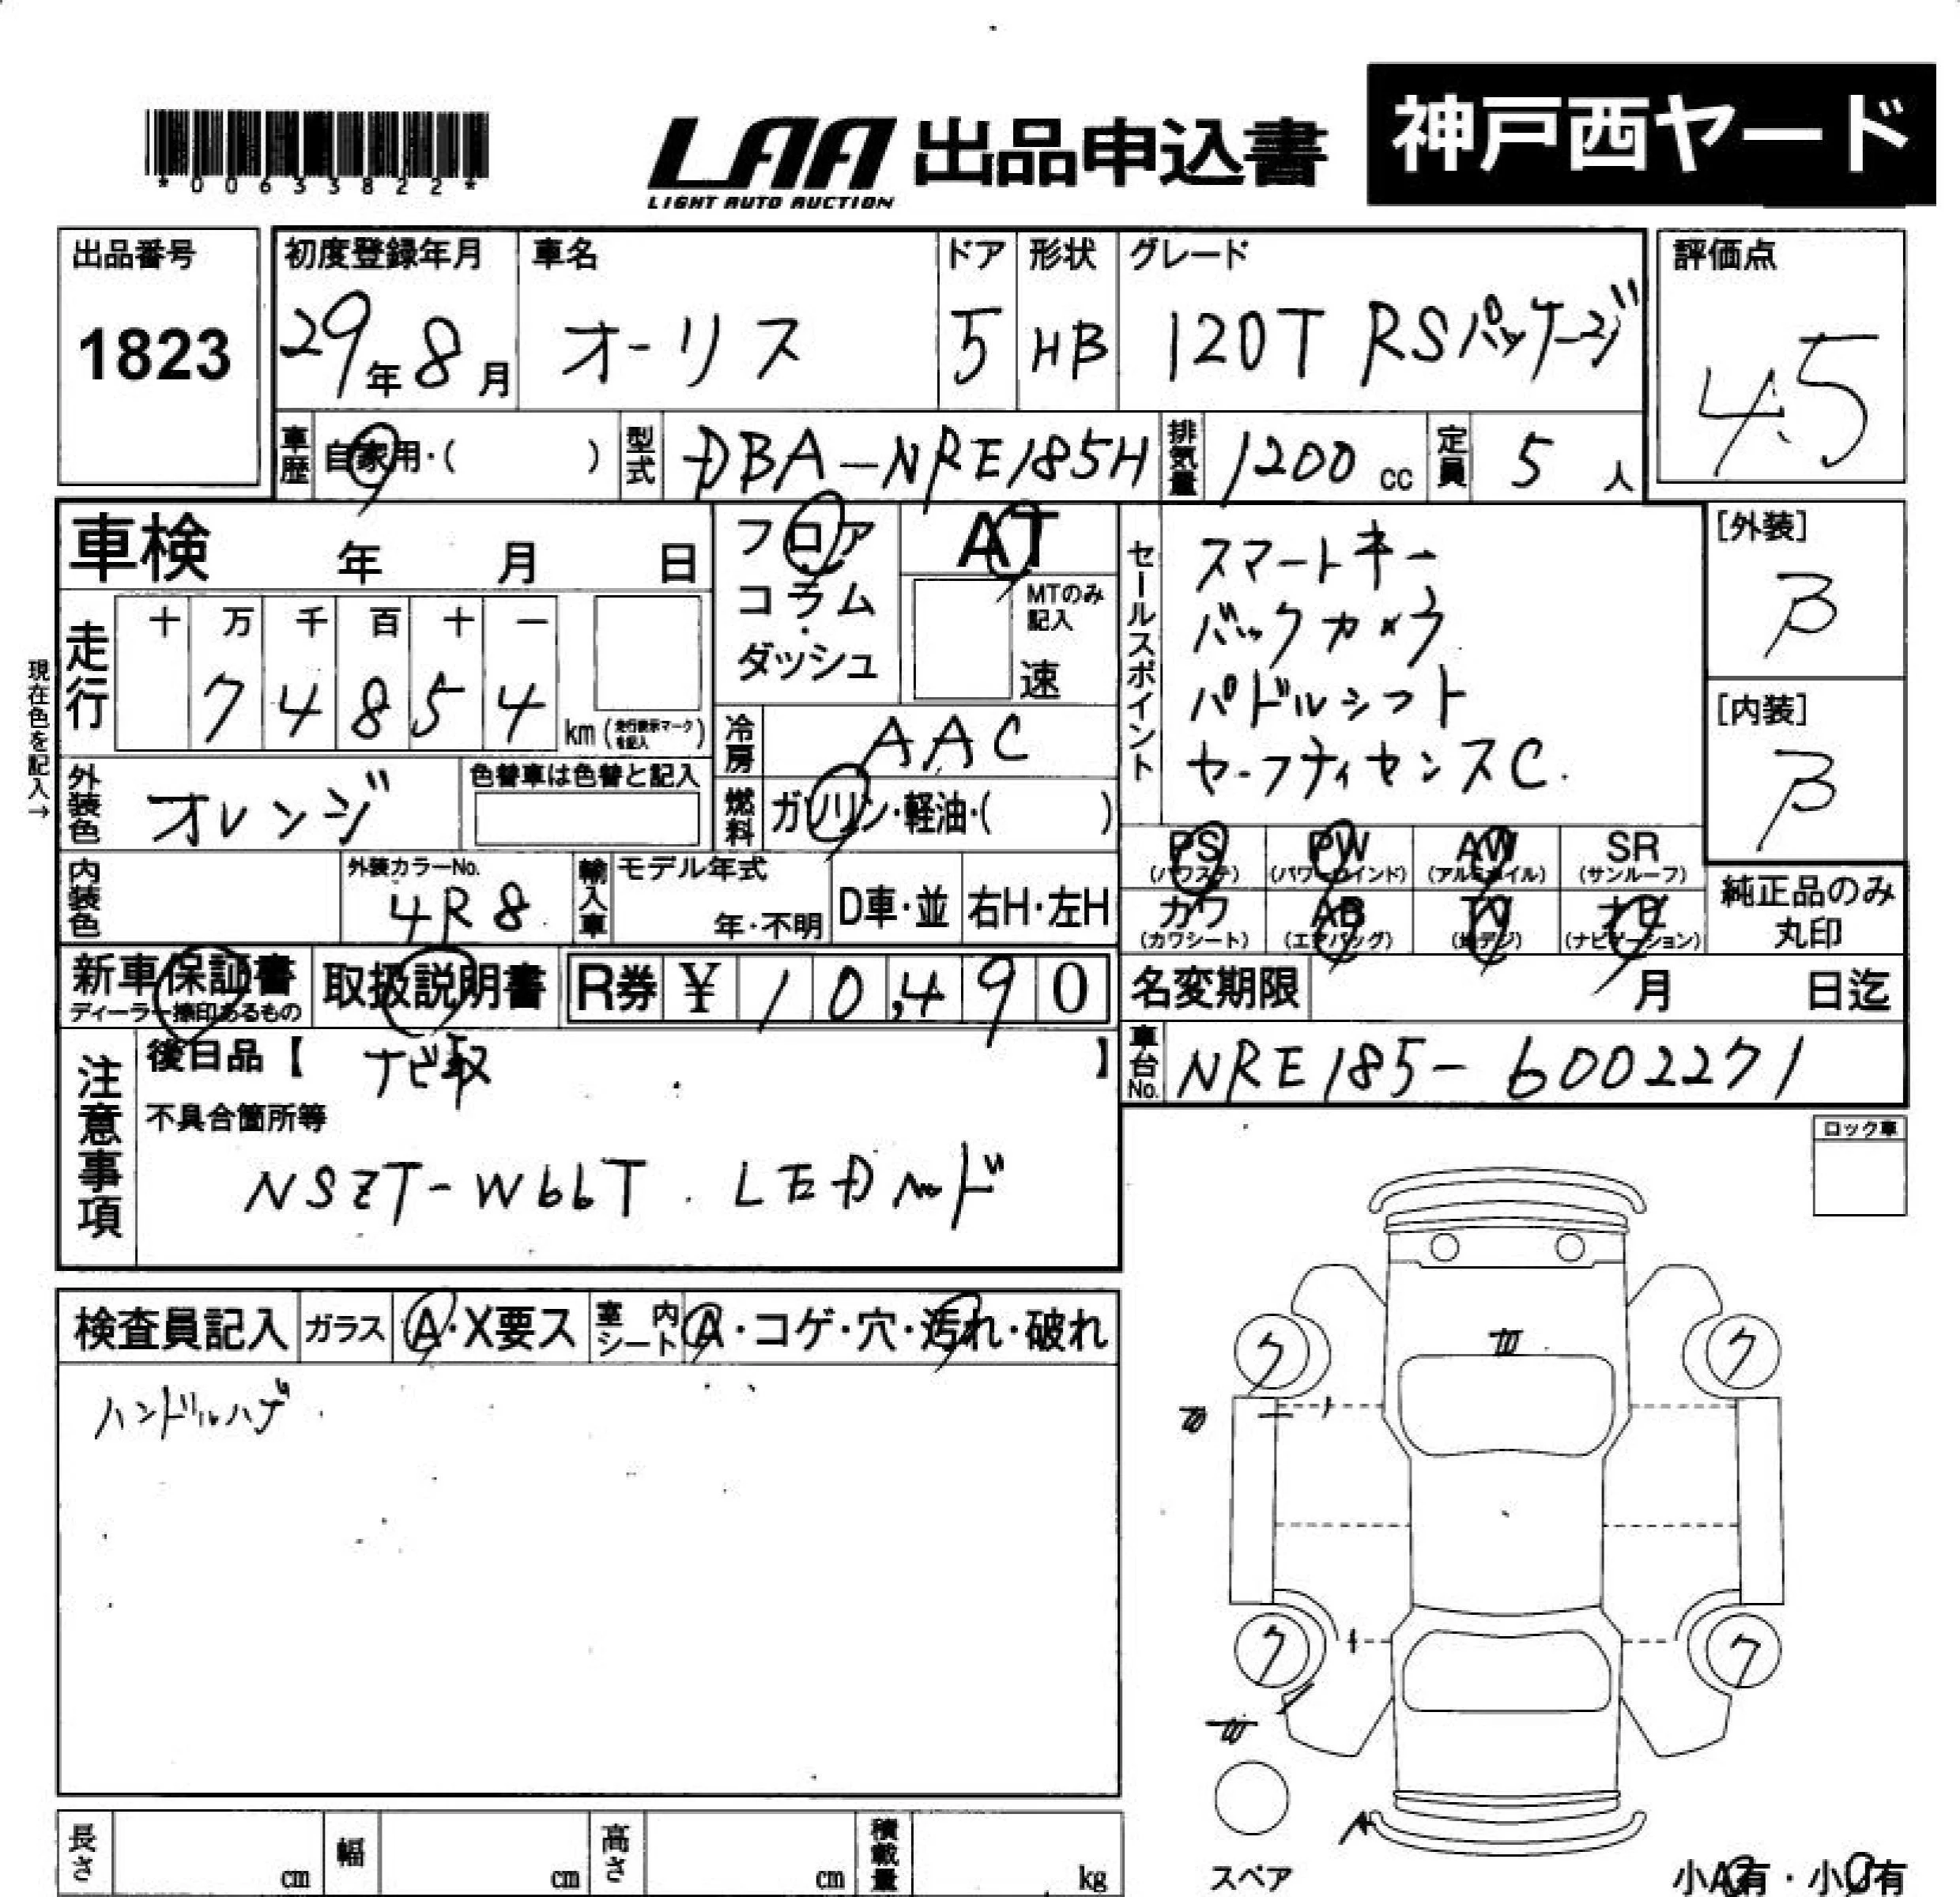 *00633822*
LAA 出品申込書 神戸西ヤード
LIGHT AUTO AUCTION
出品番号
1823
初度登録年月
29年8月
車名
オーリス
ドア
5
形状
HB
グレード
120T RSパッケージ
評価点
4.5
車歴 自家用・( )
型式 DBA-NRE185H
排気量 1200cc
定員 5人
車検 年 月 日
フロア
コラム
・
ダッシュ
AT
MTのみ
記入
速
セールスポイント
スマートキー
バックカメラ
パドルシフト
セーフティセンスC.
[外装]
B
[内装]
B
現在色を記入→
走行
十 万 千 百 十 一
7 4 8 5 4
km(走行表示マークを記入)
冷房 AAC
外装色 オレンジ
色替車は色替と記入
燃料 ガソリン・軽油・( )
内装色
外装カラーNo.
4R8
輸入車
モデル年式
年・不明
D車・並
右H・左H
PS (パワステ)
PW (パワーウインド)
AW (アルミホイル)
SR (サンルーフ)
カワ (カワシート)
AB (エアバッグ)
TV (地デジ)
ナビ (ナビゲーション)
純正品のみ
丸印
新車保証書
ディーラー捺印あるもの
取扱説明書
R券 ¥ 10,490
名変期限 月 日迄
車台No. NRE185-6002271
注意事項
後日品【 ナビ取 】
不具合箇所等
NSZT-W66T . LEDヘッド
ロック車
検査員記入
ガラス A・X要ス
室内シート A・コゲ・穴・汚れ・破れ
ハンドルハゲ
ク ク
ク ク
スペア
長さ cm
幅 cm
高さ cm
積載量 kg
小A有・小U有